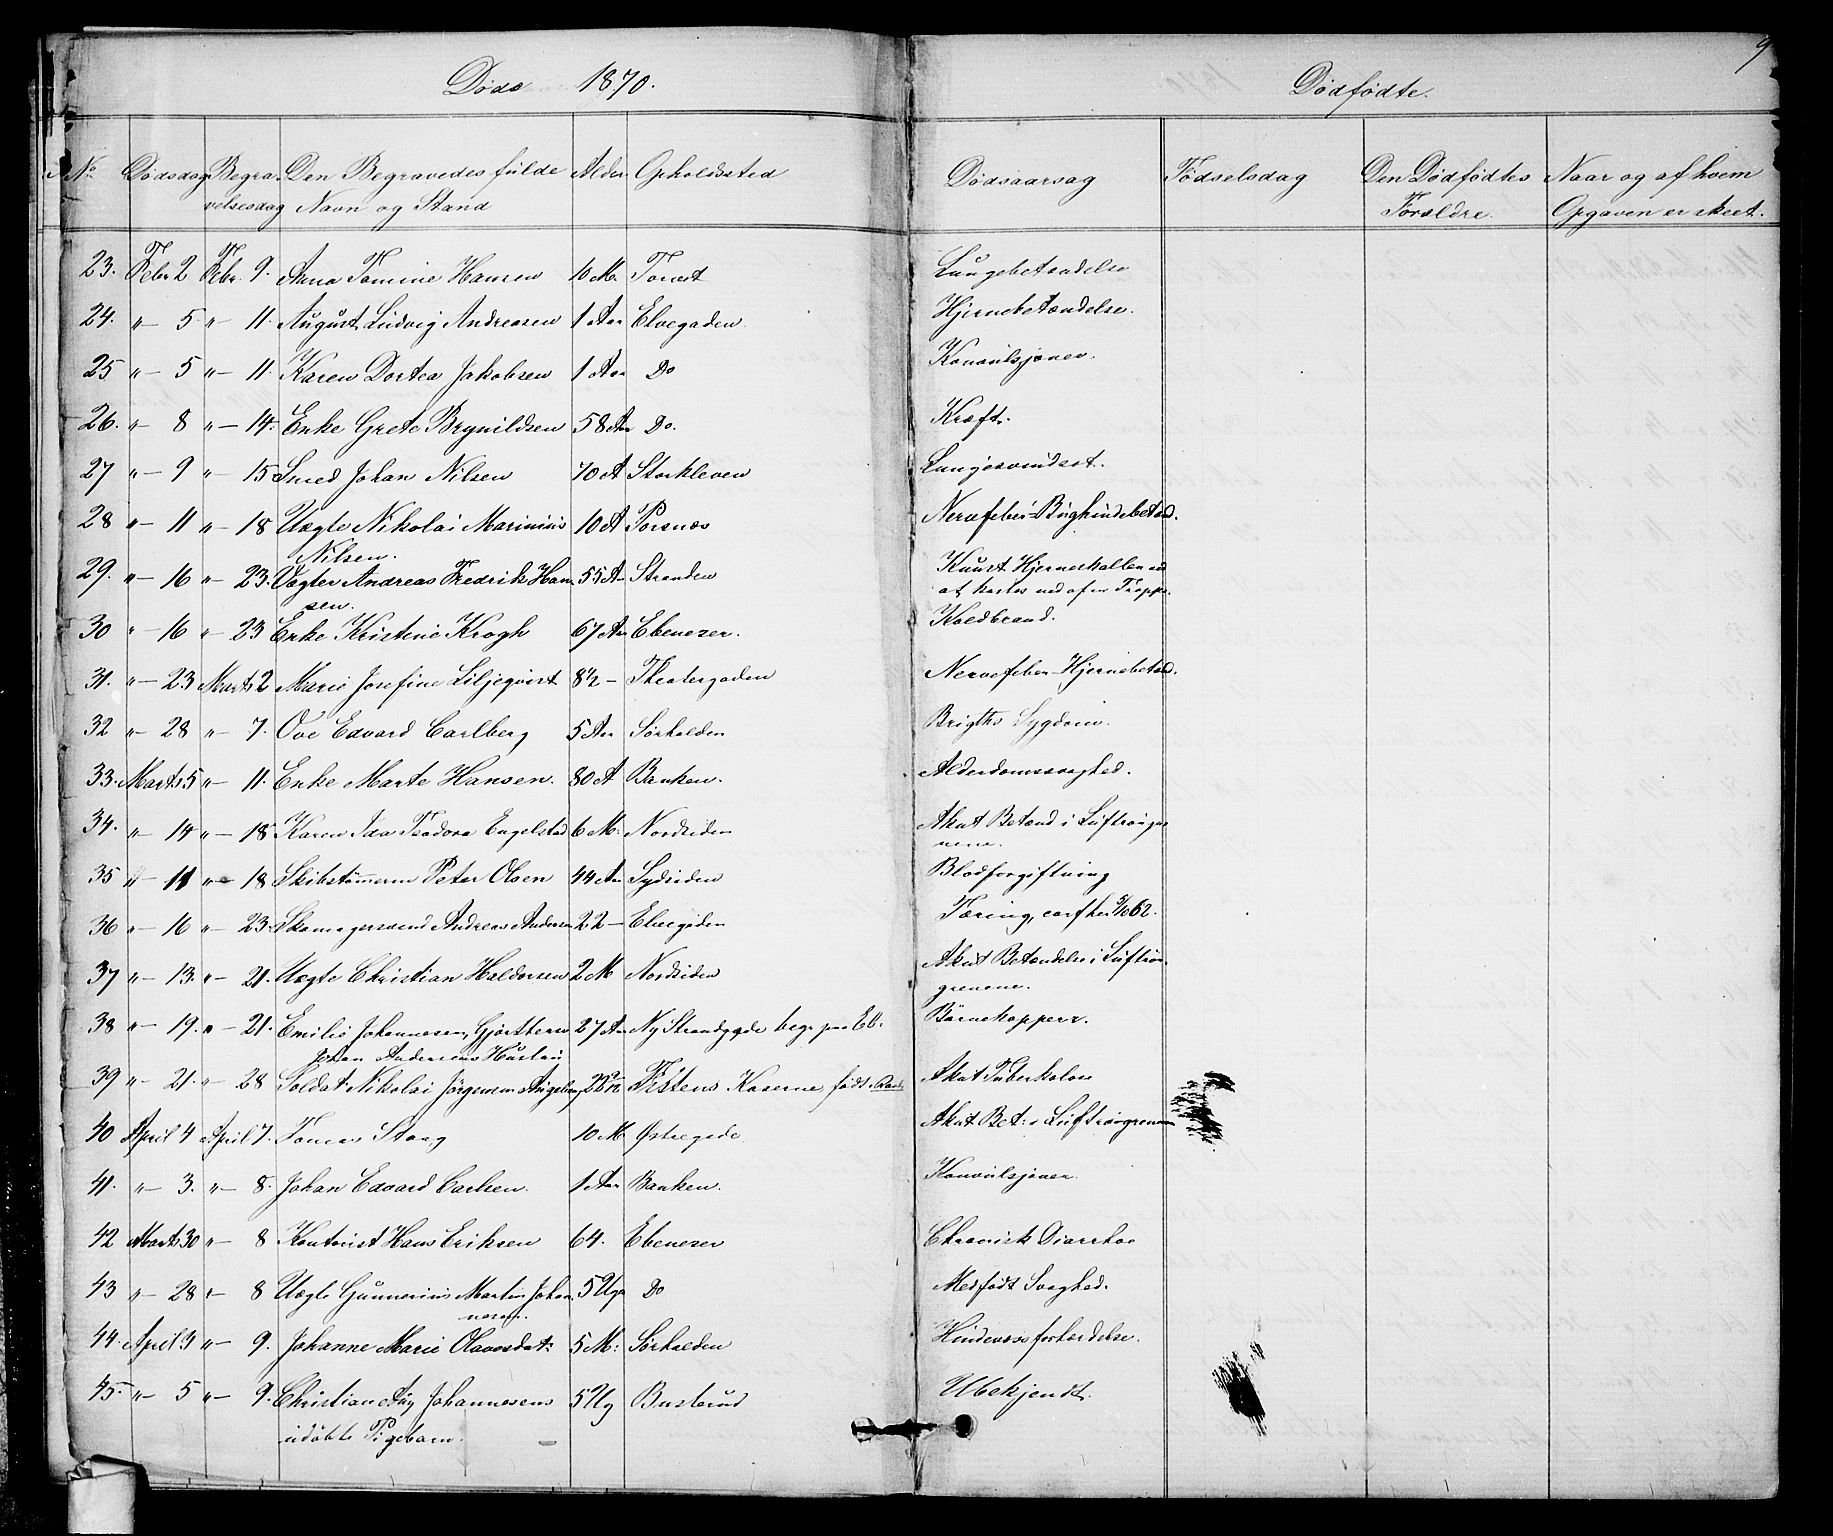 9
Døde 1870.
Dødfødte.
No Dødsdag Begra- Den Begravedes fulde Alder. Opholdssted Dødsaarsag Fødselsdag Den Dødfødtes Naar og af hvem
velsesdag Navn og Stand Forældre. Opgaven er skeet.
23. Febr 2 Febr. 9. Anna Tomine Hansen 10 M. Torvet Lungebetændelse
24. " – 5. " – 11. August Ludvig Andreasen 1 Aar Elvegaden. Hjernebetændelse.
25 " – 5 " – 11. Karen Dortea Jakobsen 1 Aar Do Konvulsjoner.
26. " – 8 " – 14. Enke Grete Brynildsen 58 Aar Do. Kræft.
27 " – 9 " – 15 Smed Johan Nilsen 70 A Storkleven Lungesvindsot.
28 " – 11 " – 18 Uægte Nikolai Marinius 10 A Porsnæs Nervefeber-Bughindebetænd.
Nilsen.
29. " – 16 " – 23. Vægter Andreas Fredrik Han- 55 Aar Stranden Knust Hjerneskallen ved
sen. at kastes ned af en Trappe.
30 " – 16 " – 23 Enke Kristine Krogh 67 Aar Ebenezer. Koldbrand.
31. " – 23 Marts 2 Marie Josefine Liljeqvist 8 1/2 – Theatergaden Nervefeber-Hjernebetænd.
32 " – 28 " – 7. Ove Edvard Carlberg 5 Aar Sørhalden Brigths Sygdom.
33. Marts 5 " – 11. Enke Marte Hansen. 80 A Banken. Alderdomssvaghed.
34. " – 14 " – 18. Karen Ida Teodora Engelstad 6 M. Nordsiden Akut Betænd i Luftrørgre
nene.
35 " – 11 " – 18 Skibstømmerm Peter Olsen 44 Aar Sydsiden Blodforgiftning
36 " – 16 " – 23. Skomagersvend Andreas Andersen 22 – Elvegaden Tæring, conf her 5/10 62.
37 " – 13. " – 21. Uægte Christian Haldorsen 2 M Nordsiden Akut Betændelse i Luftrør-
grenene.
38 " – 19. " – 21. Emilie Johannesen, Gjørtleren 27 Aar Ny Strandgade begr. paa Eb. Børnekopper.
Johan Andersens Hustru
39 " – 21. " – 28 Soldat Nikolai Jørgensen Fistens Kaserne født Akut Tuberkolose
40 April 4 April 7. Tomas Staag 10 M Østregade Akut Bet: i Luftrørgrenene
41. " – 3. " – 8. Johan Edvard Carlsen. 1 Aar Banken. Konvulsjoner.
42 Marts 30 " – 8 Kontorist Hans Eriksen 64. Ebenezer Chronisk Diarrhoe
43 " – 28 " – 8 Uægte Gunnerius Martin Johan- 5 Uger Do Medfødt Svaghed.
nesen.
44. April 3 " – 9. Johanne Marie Olavesdat: 5 M: Sørhalden
45. " – 5 " – 9. Christian Aug Johannesens 5 Ug Busterud Ubekjendt.
udøbte Pigebarn.